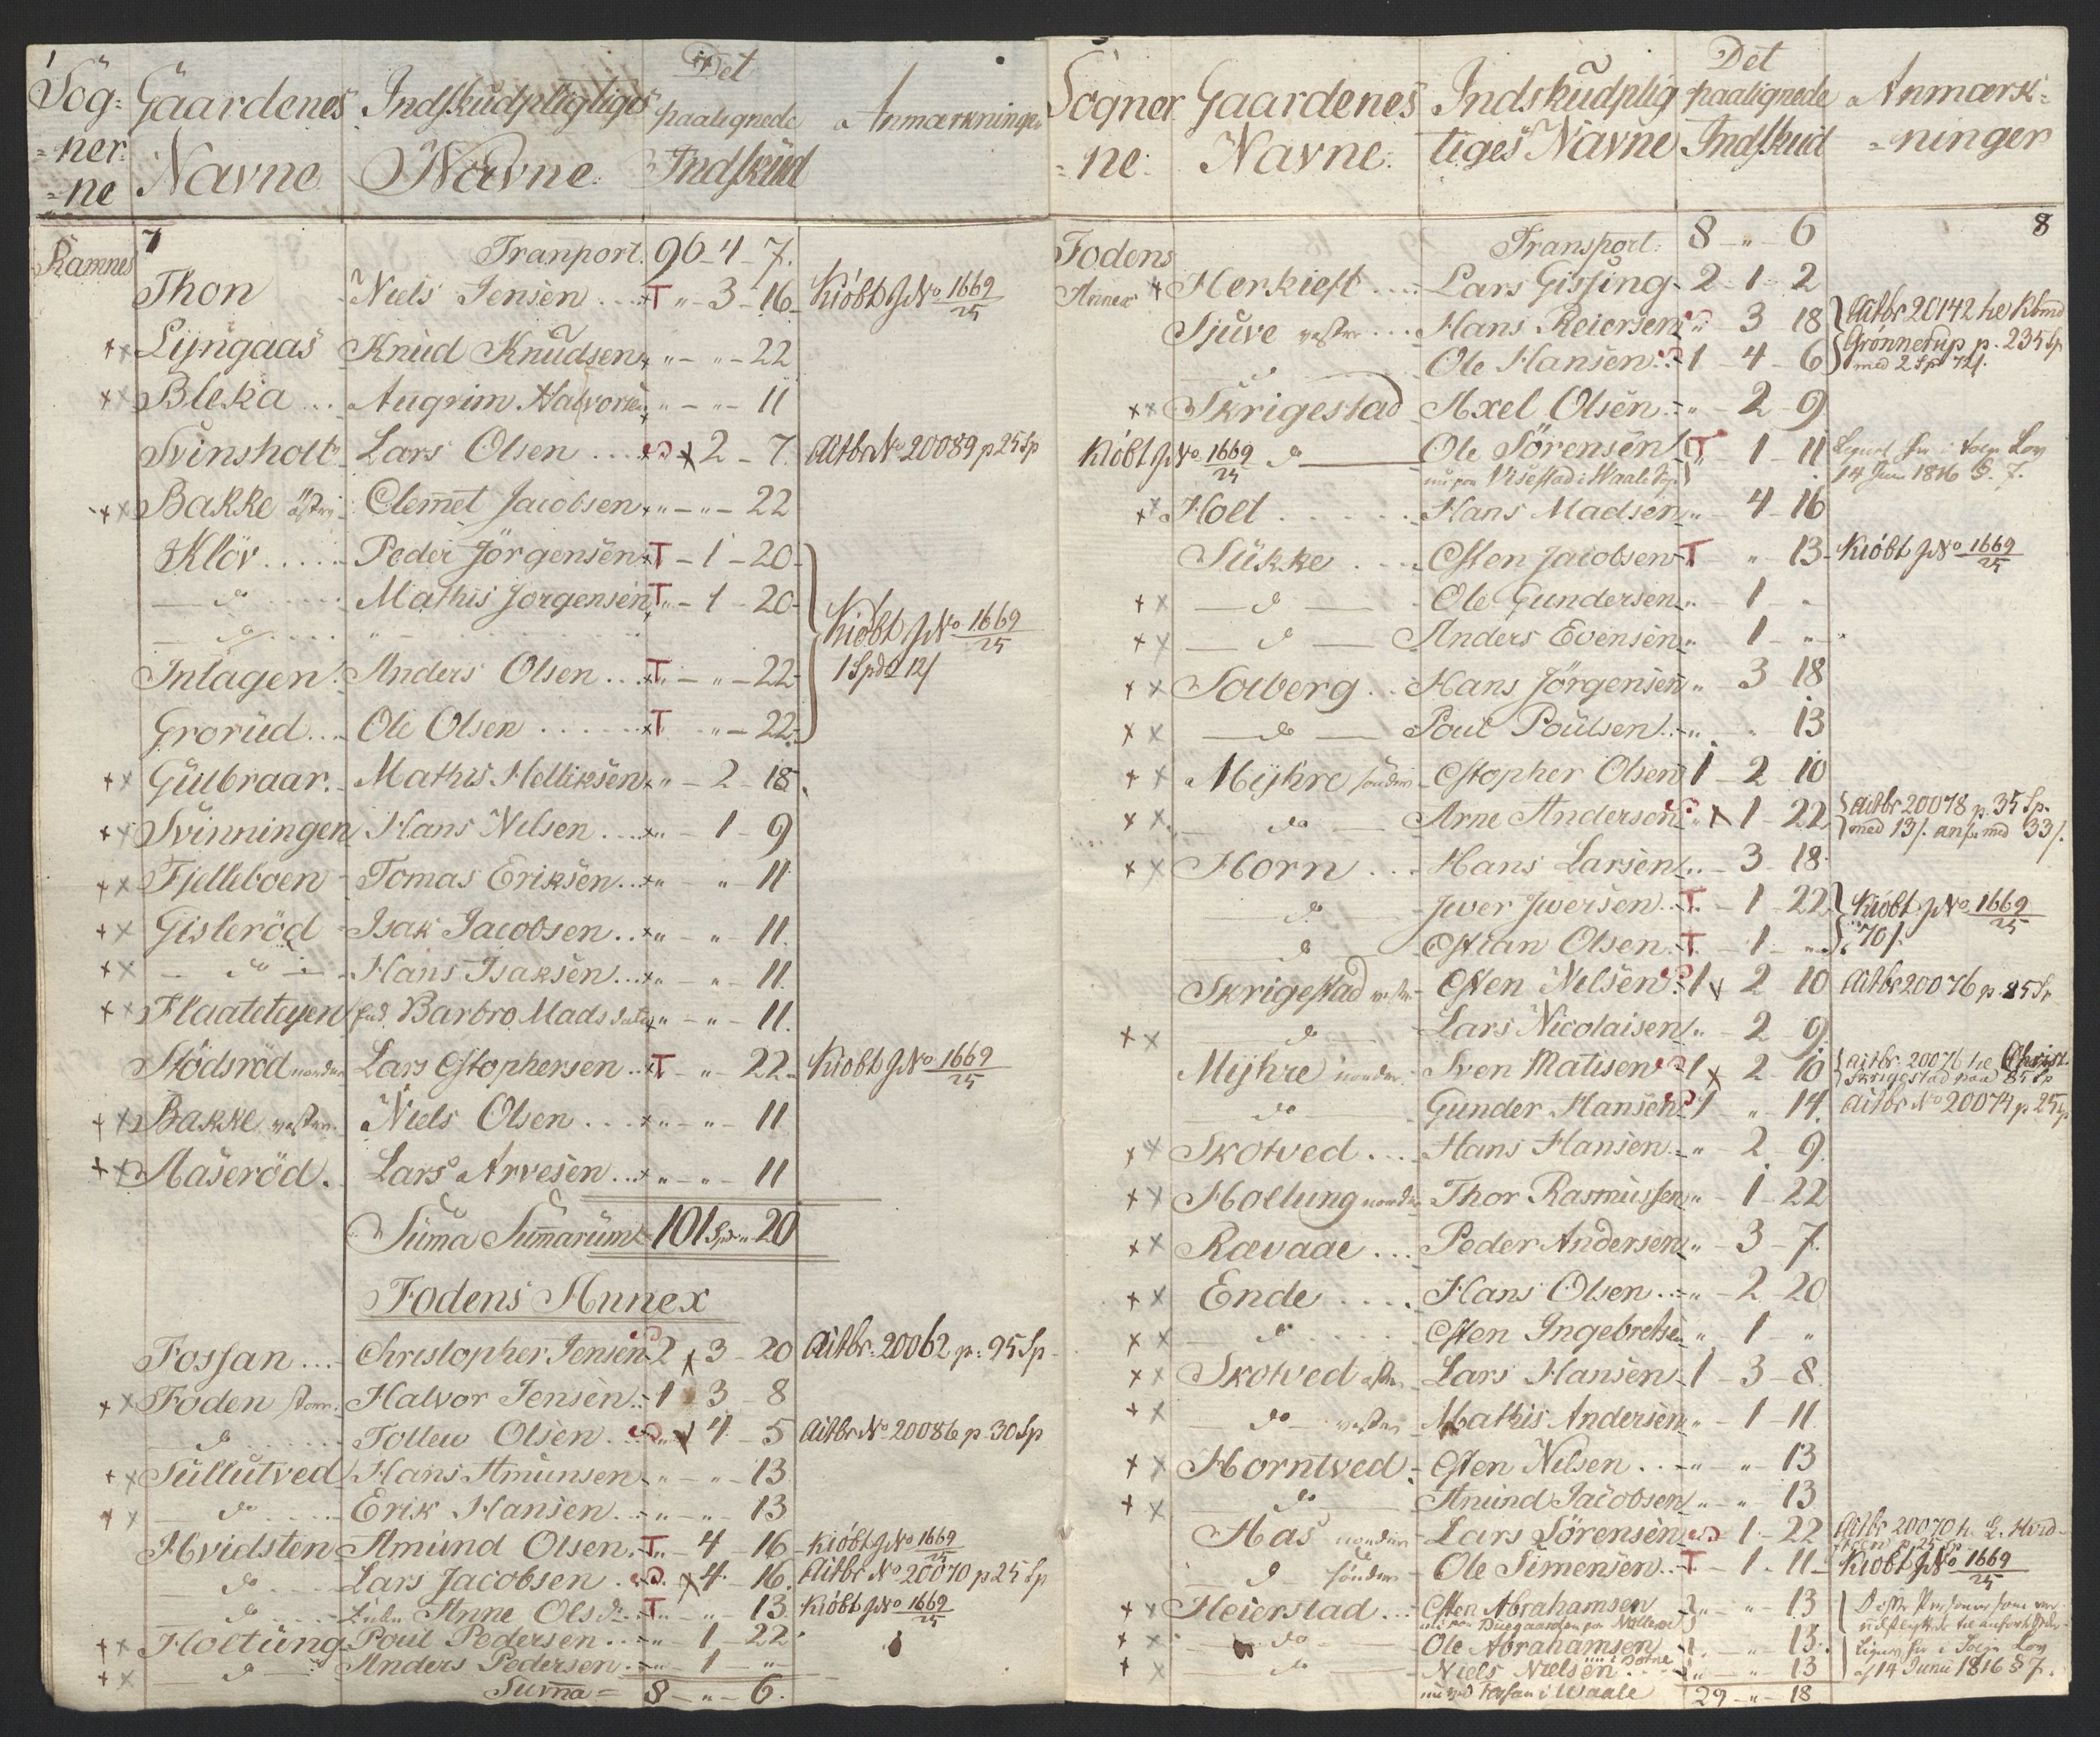 Sog= Gaardenes Indskudpligtiges Det paalignede Anmærkninger
=ner=
=ne Navne Navne Indskud
Ramnes 7 Tranport. 96 - 4 - 7.
Thon Niels Jensen .... T " - 3 - 16 - Kiöbt JNo 1669/25
++ Lijngaas Knud Knudsen " - " - 22
++ Bleka ... Augrim Halvorsen " - " - 11
Svinsholt Lars Olsen .... x 2 - 7. AitbrNo 20089 p 25 Sp
++ Bakke östre Clemet Jacobsen " - " - 22
Klöv ..... Peder Jörgensen T - 1 - 20 -
do Mathis Jorgensen T " - 1 - 20 - Kiöbt JNo 1669/25
do "
Inlagen Anders Olsen ... T " - " - 22 - 1 Spd 2 12/
Grorud ... Ole Olsen ...... T " - 22 -
++ Gulbraar. Mathis Helliksen " - 2 - 18
++ Svinningen Hans Nilsen .... " - 1 - 9
++ Fjelleboen Tomas Eriksen ... " - " - 11
++ Gisleröd Isak Jacobsen ... " - " - 11.
++ do Hans Isaksen ... " - " - 11.
++ Flaateteyen Barbro Mads datter " - " - 11.
Stödsröd norder Lars Cstophersen .. T - " - 22 - Kiöbt JNo 1669/25
++ Bakke vestre. Niels Olsen .... " - " - 11
++ Aaseröd. Lars Arvesen ... " - " - 11
Suma Sumarum 101 Spd " 20
Fodens Annex
Fossan ... Christopher Jensen 2 x 3 - 20 Aitbr. 20062 p. 95 Sp
++ Foden store. Halvor Jensen .. 1 3 - 8
do ...... Tollew Olsen . " x 4 - 5 AitbrNo 20086 p 30 Sp
++ Tullutved Hans Amunsen " - " - 13
++ do .... Erik Hansen ... " - " - 13
Hvidsten Amund Olsen . T " - 4 - 16 - Kiöbt JNo 1669/25
do .... Lars Jacobsen .. x 4 - 16. Aitbr No 20070 p 25 Sp
do .... Anne Ols D. .. T " - " - 13. Kiöbt JNo 1669/25
++ Holtung Poul Pedersen ... " - 1 - 22
++ do Anders Pedersen ... " - 1 - "
Suma = 8 - " - 6.
Sogner Gaardenes Indskudplig Det paalignede Anmærk=
=ne: Navne: tiges Navne Indskud =ninger
8
Fodens Transport: 8 - " - 6
Annex + Herkieft .... Lars Gissing - 2 - 1 - 2
Sjuve vestre ... Hans Reiersen " 3 18 Aitbr 20142
Ole Hansen .. 1 - 4 - 6 Grønnerup p. 235 Sp med 2 Sp 72/.
++ Skrigestad Axel Olsen .. " - 2 - 9
Kiöbt JNo 1669/25 do Ole Sörensen T 1 - 11 Lov
nu paa Visestad i Waale 14 Juni 1816 § 7.
++ Holt ...... Hans Madsen " 4 - 16
Sukke .... Csten Jacobsen T " - 13 - Kiöbt JNo 1669/25
++ do Ole Gundersen " - 1 - "
++ do Anders Evensen " 1 - "
++ Solberg .. Hans Jörgensen " 3 18
++ do Poul Poulsen .. " " 13
++ Mijhre sönder Cstopher Olsen 1 - 2 - 10
++ do Arne Anderson " x 1 - 22 Aitbr 20078 p. 35 Sp.
med 13/. med 33/.
++ Horn .... Hans Larsen .. " - 3 - 18
do Jver Jversen .. T - 1 - 22 Kiöbt JNo 1669/25
do Cstian Olsen . T - 1 - " 70/.
Skrigestad vestre Csten Nilsen 1 x 2 10 Aitbr 20076 p. 85 Sp
++ do Lars Nicolaisen " - 2 - 9
Mijhre norder. Sven Matisen 1 x 2 - 10 Aitbr. 20076 Christ.
Skrigestad paa 85 Sp
do Gunder Hansen 1 " 14. Aitbr No 20074 p 25 Sp
++ Skotved ... Hans Hansen " - 2 - 9
++ Holtung nordre Thor Rasmussen " - 1 - 22
++ Rævaae ... Peder Andersen " - 3 - 7.
++ Ende ..... Hans Olsen ... " - 2 - 20
++ do ..... Csten Ingebretsen " - 1 - "
++ Skotved Lars Hansen 1 - 3 - 8
++ do vestre Mathis Andersen " - 1 - 11
++ Horntved. Csten Nilsen ... " - " - 13
++ do Amund Jacobsen " - " - 13
Has norder Lars Sörensen - 1 - 22 Aitbr 20070 h. L. Hvid=
steen p 25 Sp
do sönder Ole Simensen .. T - 1 - 11 - Kiöbt JNo 1669/25
++ Heierstad ... Csten Abrahamsen " - " - 13
++ do Ole Abrahamsen " - 13.
++ do Niels Nielsen " - " - 13 af 14 Juni 1816 § 7.
i Waale 29 - " - 18